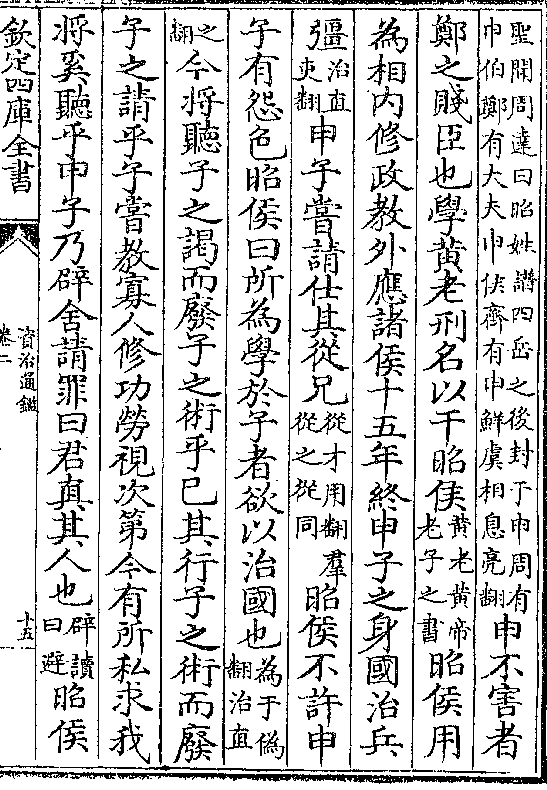 聖聞周達曰昭姓譜四岳之後封于申周有
申伯鄭有大夫申侯齊有申鮮虞相息亮翻
申不害者
鄭之賤臣也學黄老刑名以干昭侯
黄老黄帝
老子之書
昭侯用
為相内修政教外應諸侯十五年終申子之身國治兵
彊
治直
吏翻
申子嘗請仕其從兄
從才用翻羣
從之從同
昭侯不許申
子有怨色昭侯曰所為學於子者欲以治國也
為于偽
翻治直
之
翻
今將聽子之謁而廢子之術乎已其行子之術而廢
子之請乎子嘗教寡人修功勞視次第今有所私求我
將奚聽乎申子乃辟舍請罪曰君真其人也
辟讀
曰避
昭侯
欽定四庫全書
資治通鑑
卷二
十五